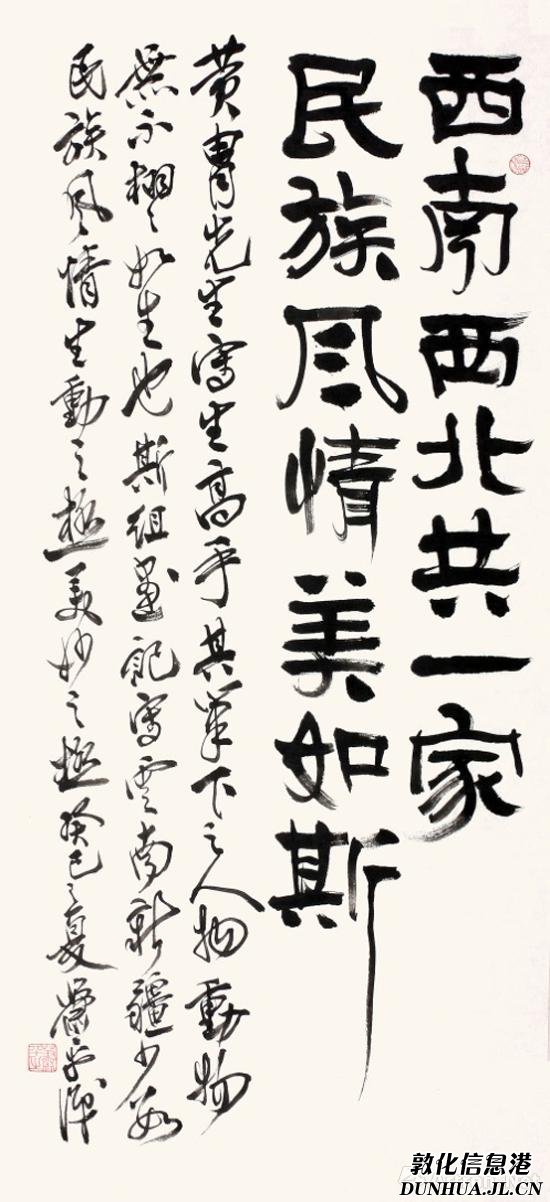 西南西北共一家
民族风情美如斯
黄胄先生寫生高手其筆下之人物動物
無不栩栩如生也斯組畫記寫雲南新疆少数
民族风情生動之極美妙之極癸巳之夏蕭平識
敦化信息港
DUNHUA.JL.CN